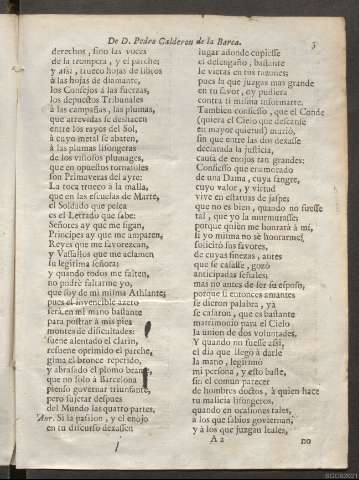 De D. Pedro Calderon de la Barca.
3
derechos, sino las voces
de la trompeta, y el parche;
y assi, trueco hojas de libros
à las hojas de diamante,
los Consejos à las fuerzas,
los depuestos Tribunales
à las campañas, las plumas,
que atrevidas se deshacen
entre los rayos del Sol,
à cuyo metal se abaten,
à las plumas lisongeras
de los viñosos plumages,
que en opuestos tornasoles
son Primaveras del ayre:
La toca trueco à la malla,
que en las escuelas de Marte,
el Soldado que pelea
es el Letrado que sabe:
Señores ay que me sigan,
Principes ay que me amparen,
Reyes que me favorezcan,
y Vassallos que me aclamen
su legitima señora;
y quando todos me falten,
no podrè faltarme yo,
que soy de mi misma Athlante;
pues el invencible azero
serà en mi mano bastante
para postrar à mis pies
montes de dificultades:
suene alentado el clarin,
resuene oprimido el parche,
gima el bronce repetido,
y abrasado el plomo brame,
que no solo à Barcelona
pienso governar triunfante,
pero sujetar despues
del Mundo las quatro partes.
Aur. Si la passion, y el enojo
en tu discurso dexassen
lugar adonde cupiesse
el desengaño, bastante
le vieras en tus razones;
pues la que juzgas mas grande
en tu favor, oy pudiera
contra ti misma informarte.
Tambien confiesso, que el Conde
(quiera el Cielo que descanse
en mayor quietud) murió,
sin que entre las dos dexasse
declarada la justicia,
causa de enojos tan grandes:
Confiesso que enamorado
de una Dama, cuya sangre,
cuyo valor, y virtud
vive en estatuas de jaspe;
que no es bien, quando no fuesse
tal, que yo la murmurasse;
porque quien me honrarà à mí,
si yo misma no sè honrarme?
solicitò sus favores,
de cuyas finezas, antes
que se casasse, gozò
anticipadas señales;
mas no antes de ser su esposo,
porque si entonces amantes
se dieron palabra, yà
se casaron, que es bastante
matrimonio para el Cielo
la union de dos voluntades.
Y quando no fuesse assi,
el dia que llegò à darle
la mano, legitimò
mi persona, y esto baste,
sin el comun parecer
de hombres doctos, à quien hace
tu malicia lisongeros,
quando en ocasiones tales,
à los que sabios governan;
y à los que juzgan leales,
A 2
no